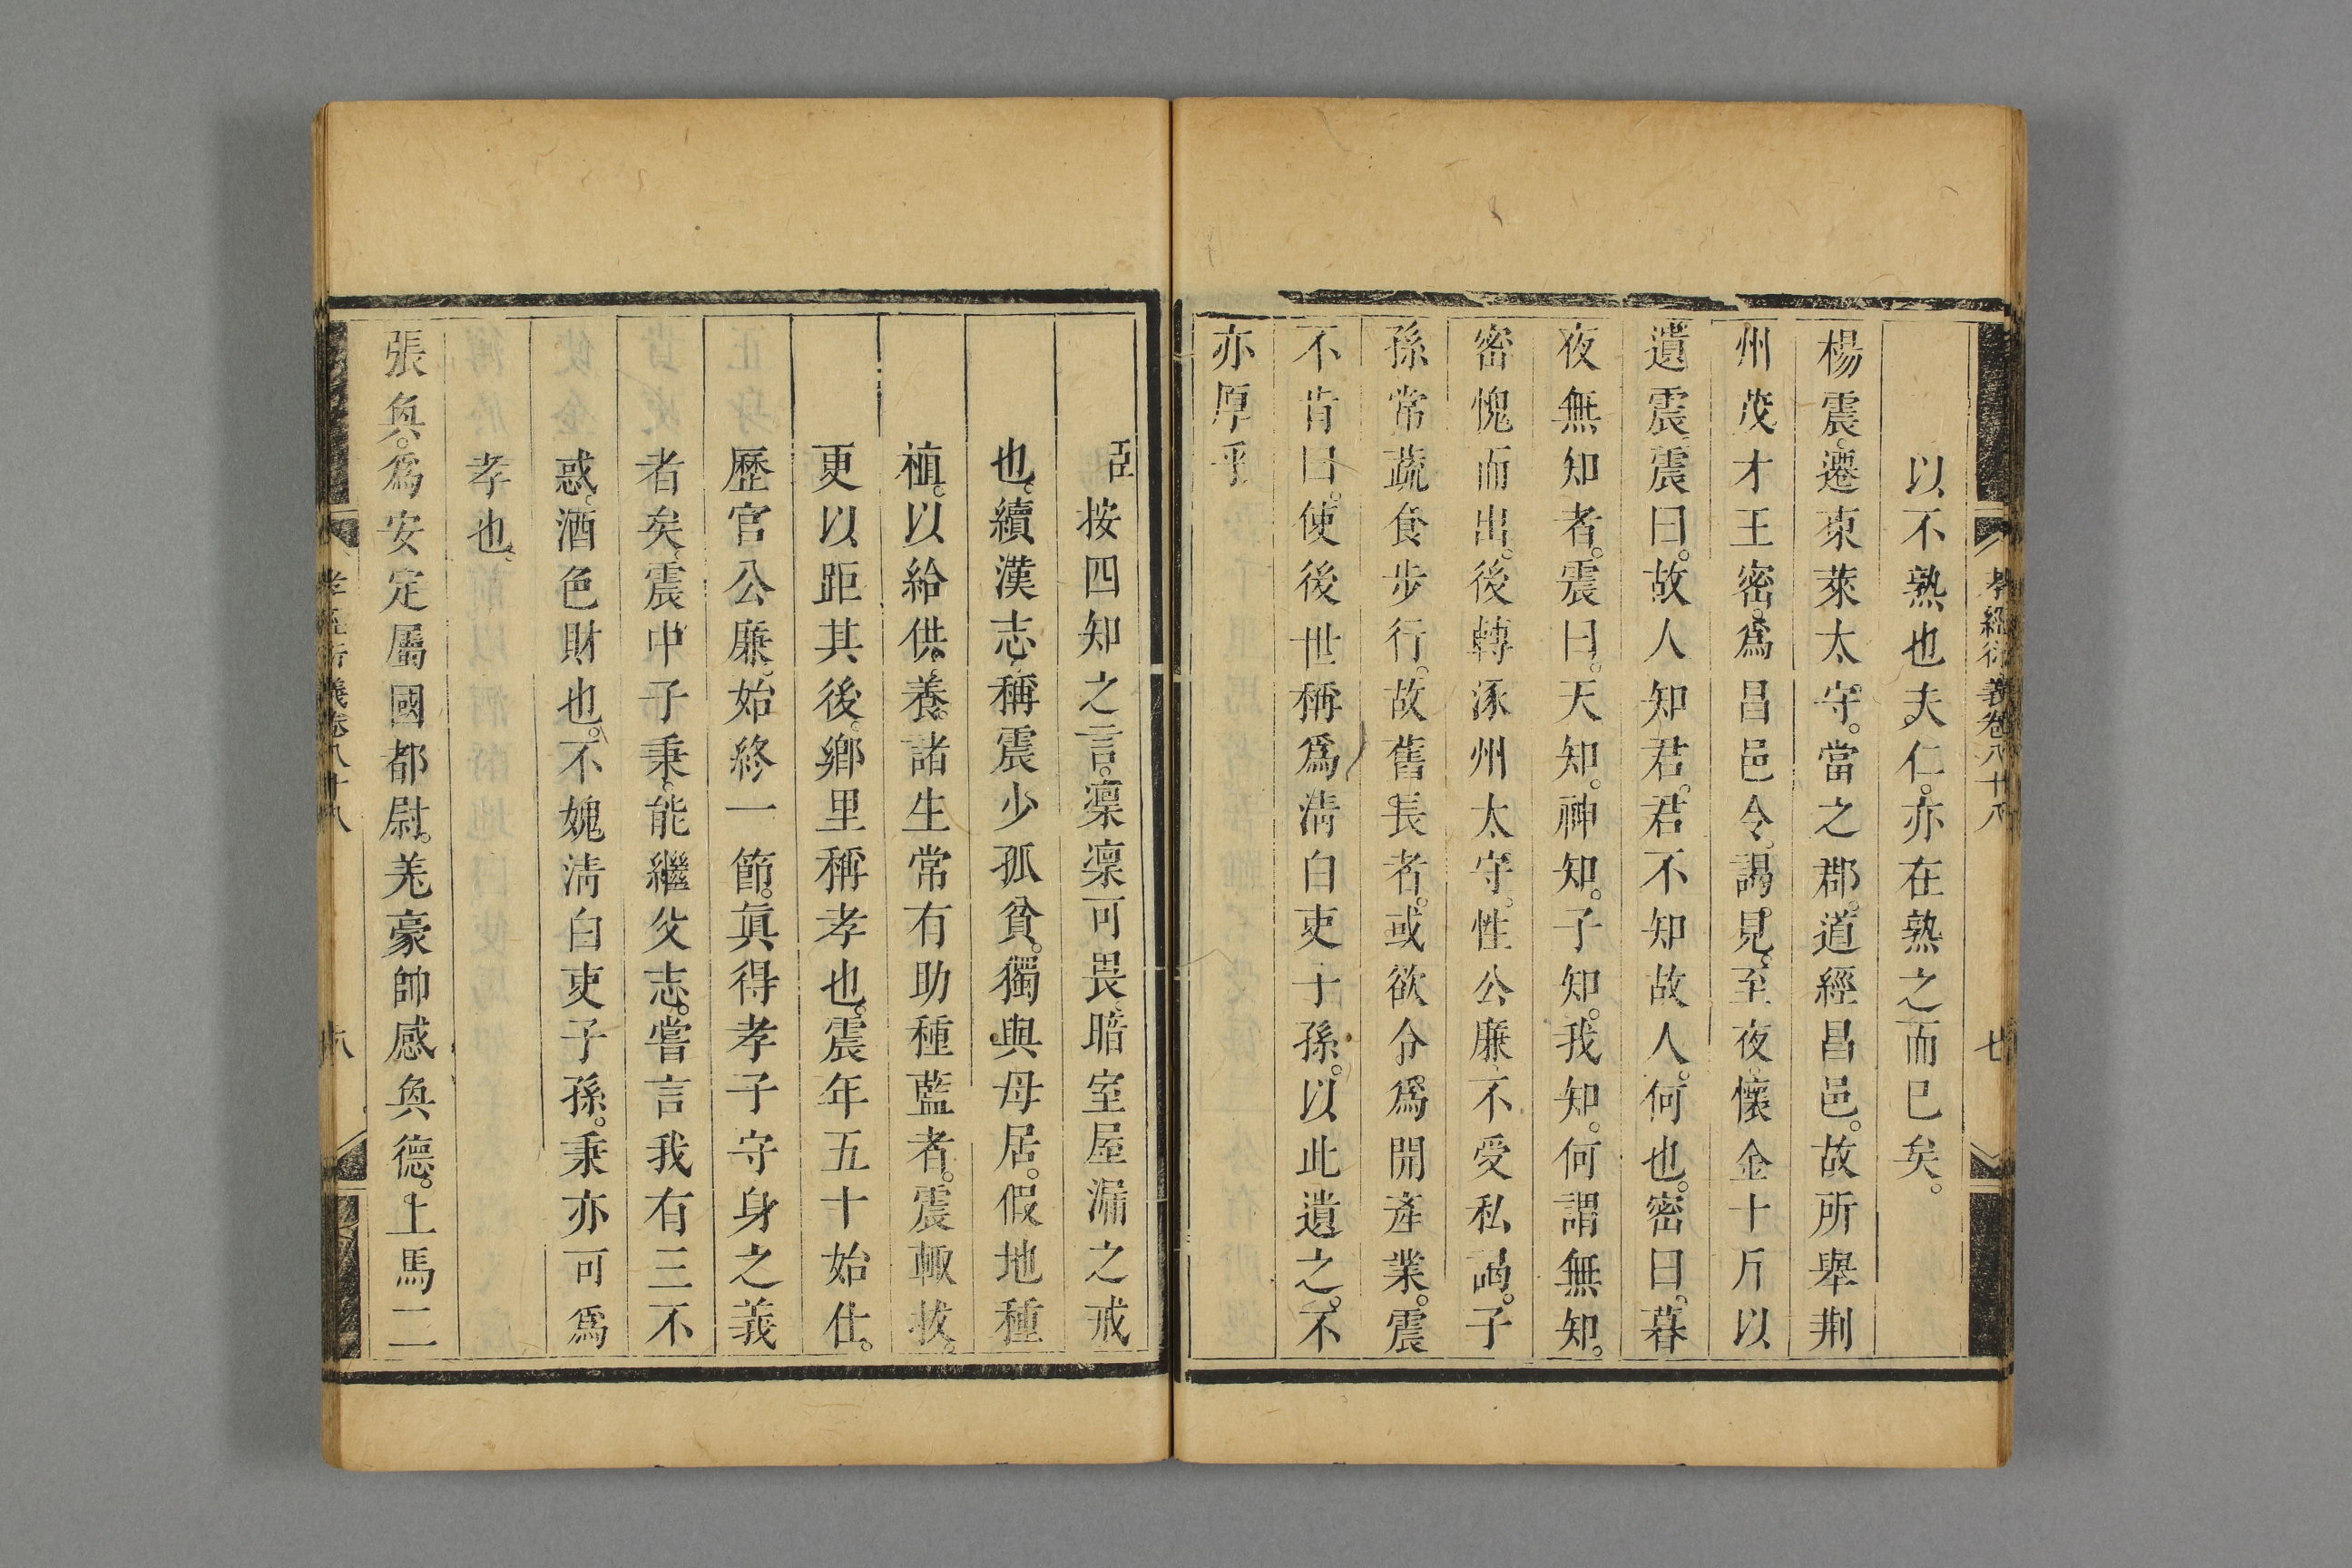 孝經衍義卷八十八 七
以不熟也夫仁。亦在熟之而已矣。
楊震。遷東萊太守。當之郡。道經昌邑。故所舉荆
州茂才王密。爲昌邑令。謁見。至夜。懷金十斤以
遺震。震曰。故人知君。君不知故人。何也。密曰。暮
夜無知者。震曰。天知。神知。子知。我知。何謂無知。
密愧而出。後轉涿州太守。性公廉。不受私謁。子
孫常蔬食步行。故舊長者。或欲令爲開產業。震
不肯曰。使後世稱爲清白吏子孫。以此遺之。不
亦厚乎
臣按四知之言。凜凜可畏。暗室屋漏之戒
也。續漢志。稱震少孤貧。獨與母居。假地種
植。以給供養。諸生常有助種藍者。震輙拔。
更以距其後。鄉里稱孝也。震年五十始仕。
歷官公廉。始終一節。眞得孝子守身之義
者矣。震中子秉。能繼父志。嘗言我有三不
惑。酒色財也。不媿清白吏子孫。秉亦可爲
孝也。
張奐。爲安定屬國都尉。羌豪帥感奐德。上馬二
孝經衍義卷八十八 八